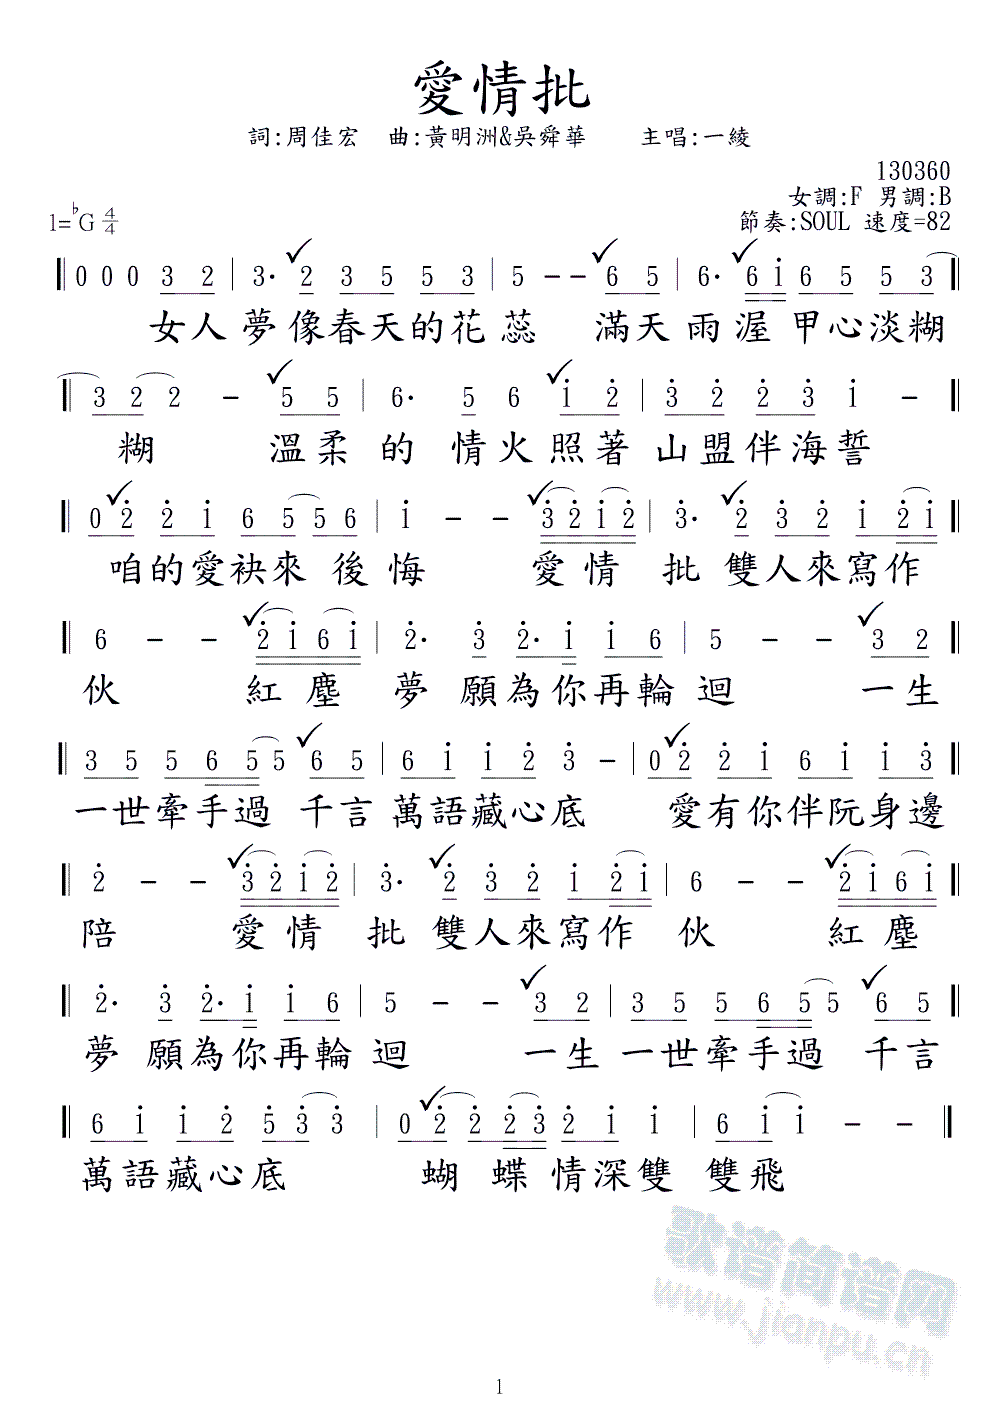 愛情批
詞:周佳宏 曲:黃明洲&吳舜華 主唱:一綾
130360
女調:F 男調:B
1=♭G 4/4 節奏:SOUL 速度=82
‖ 0 0 0 3 2 | 3· 2 3 5 5 3 | 5 - - 6 5 | 6· 6 i 6 5 5 3 ‖
女人 夢像春天的花蕊 滿天雨渥甲心淡糊
‖ 3 2 2 - 5 5 | 6· 5 6 i 2̇ | 3̇ 2̇ 2̇ 3̇ i - ‖
糊 溫柔的 情火照著山盟伴海誓
‖ 0 2̇ 2̇ i 6 5 5 6 | i - - 3̇ 2̇ i 2̇ | 3̇· 2̇ 3̇ 2̇ i 2̇ i ‖
咱的愛袂來後悔 愛情批 雙人來寫作
‖ 6 - - 2̇ i 6 i | 2̇· 3̇ 2̇· i i 6 | 5 - - 3 2 ‖
伙 紅塵 夢 願為你再輪迴 一生
‖ 3 5 5 6 5 5 6 5 | 6 i i 2̇ 3̇ - | 0 2̇ 2̇ i 6 i i 3̇ ‖
一世牽手過 千言萬語藏心底 愛有你伴阮身邊
‖ 2̇ - - 3̇ 2̇ i 2̇ | 3̇· 2̇ 3̇ 2̇ i 2̇ i | 6 - - 2̇ i 6 i ‖
陪 愛情批 雙人來寫作伙 紅塵
‖ 2̇· 3̇ 2̇· i i 6 | 5 - - 3 2 | 3 5 5 6 5 5 6 5 ‖
夢 願為你再輪迴 一生一世牽手過 千言
‖ 6 i i 2̇ 5̇ 3̇ 3̇ | 0 2̇ 2̇ 2̇ 3̇ 2̇ i i | 6 i i - - ‖
萬語藏心底 蝴蝶情深雙雙飛
歌谱简谱网
www.jianpu.cn
1